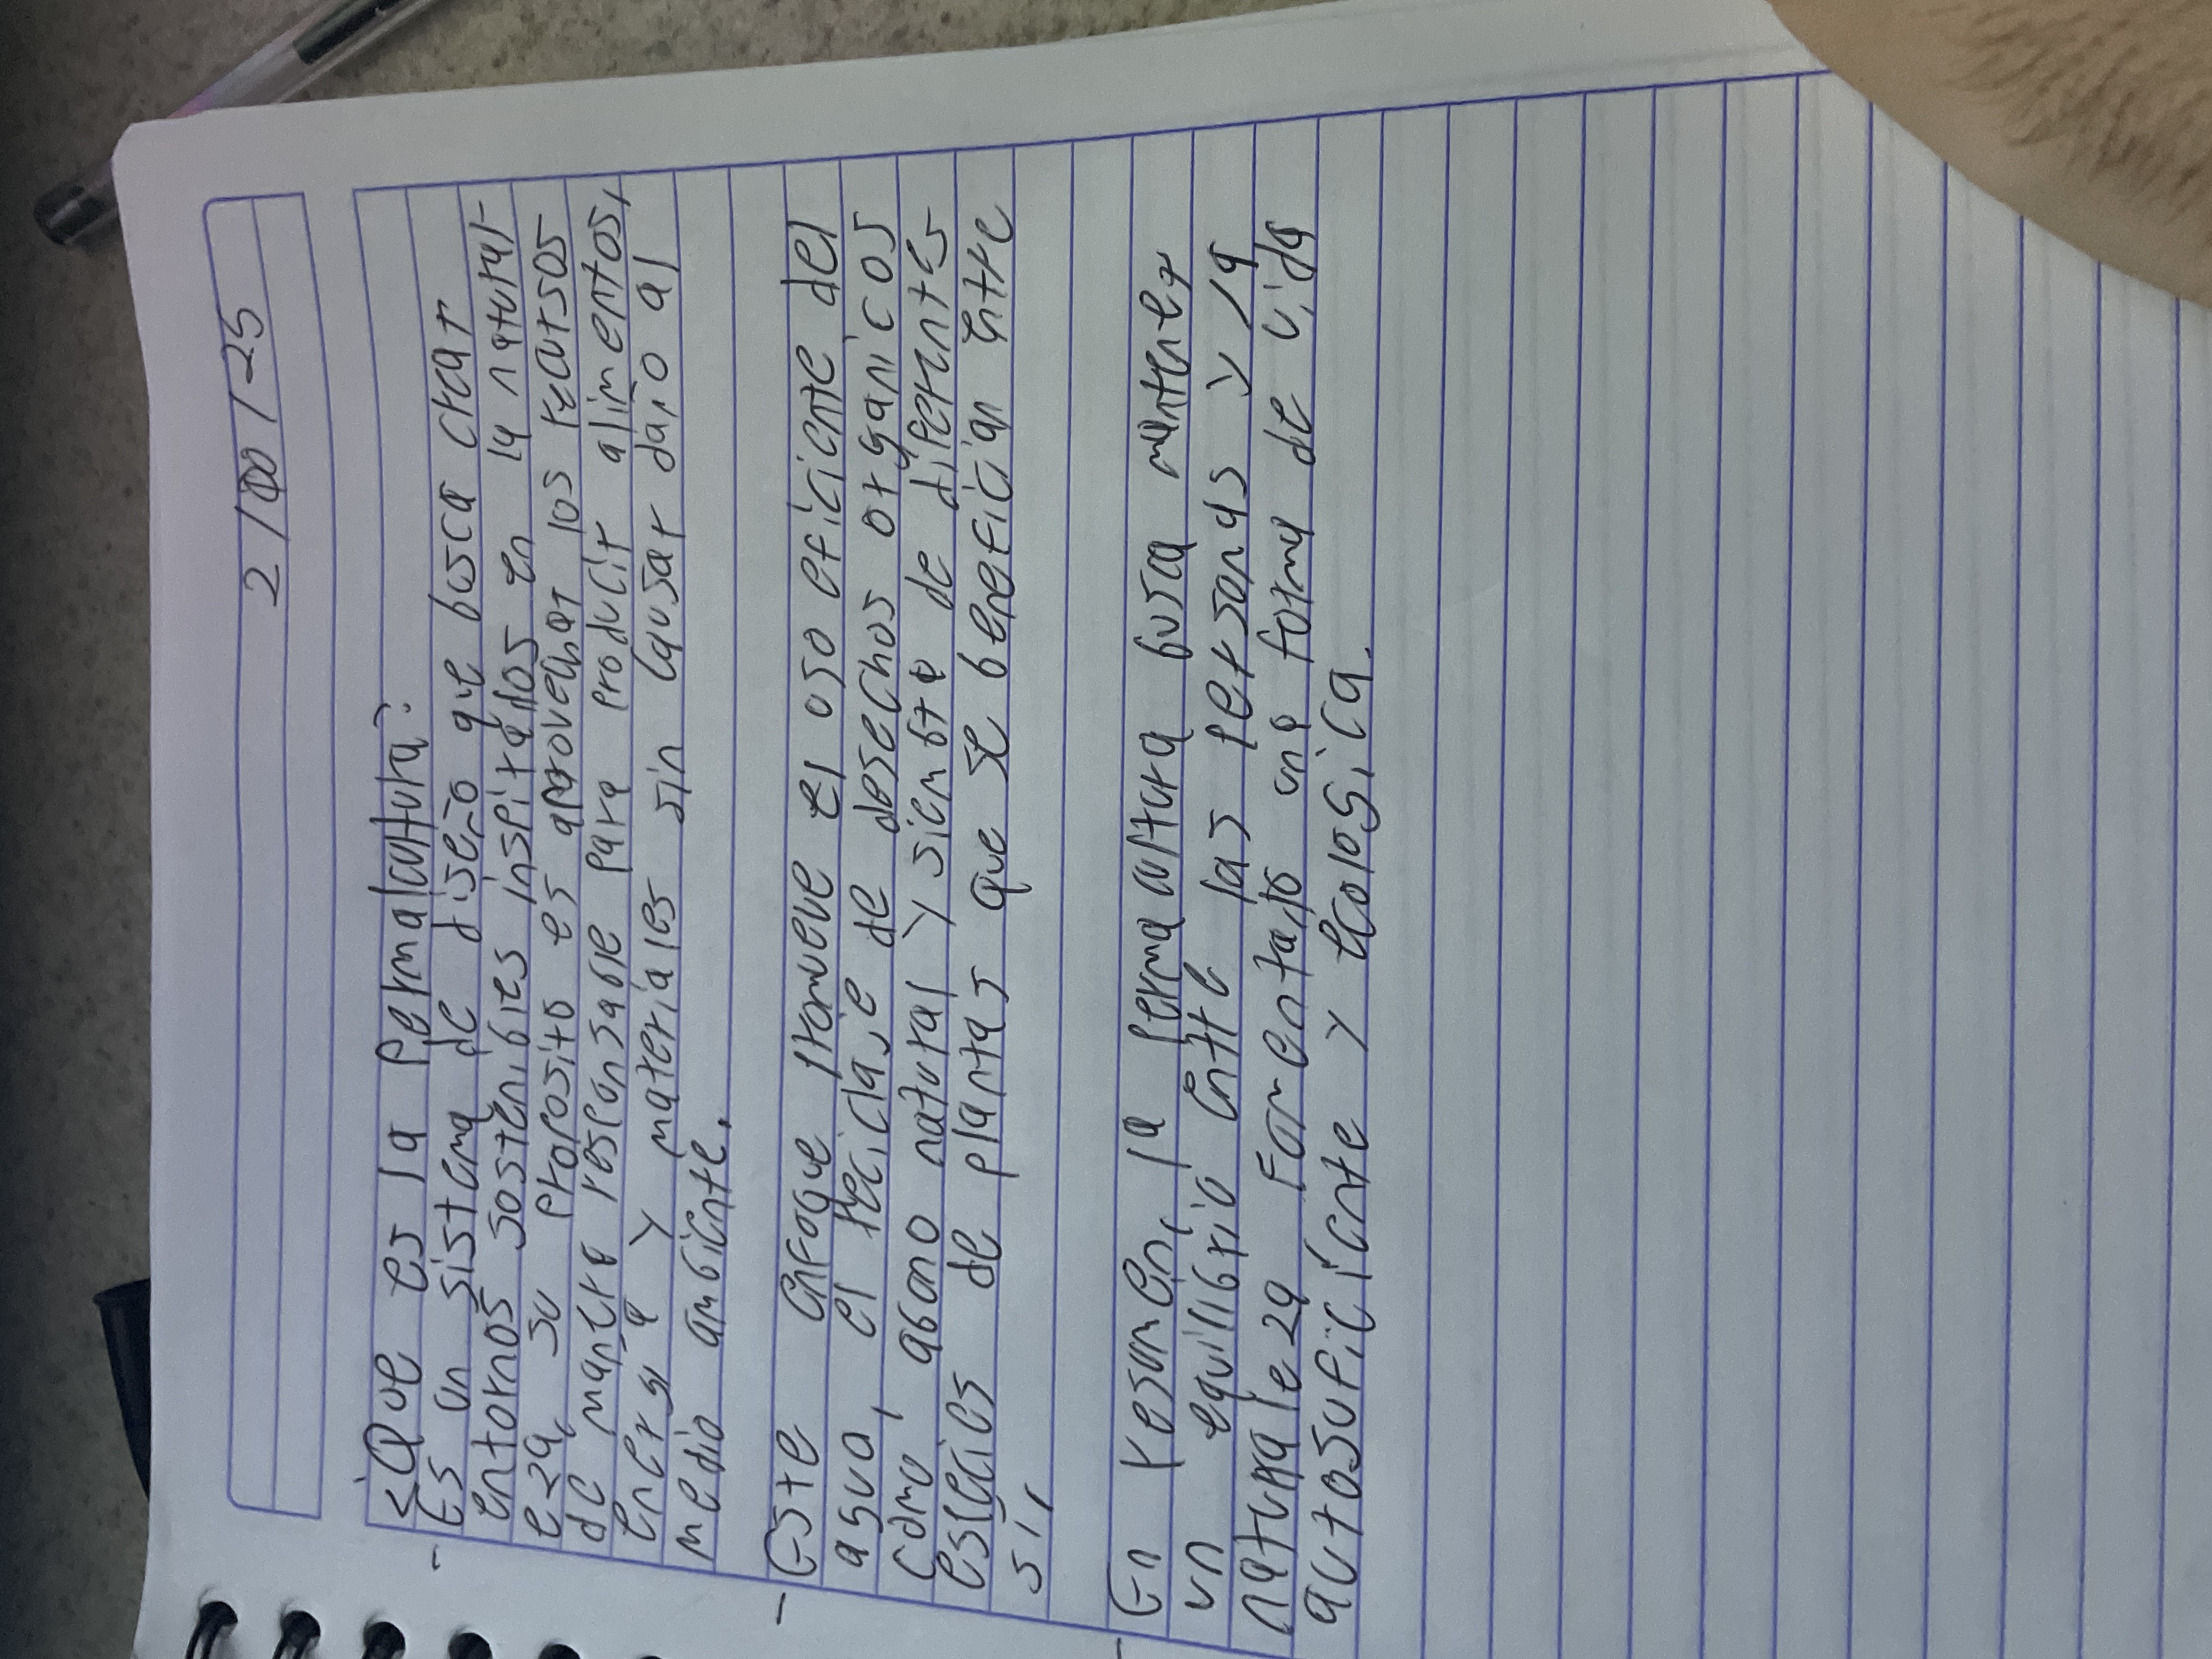 ¿Que es la Permalcultura?
- Es un sistema de diseño que busca crear
entornos sostenibles inspirados en la natural-
eza, su proposito es aprovechar los recursos
de manera responsable para producir alimentos,
energia y materiales sin causar daño al
medio ambiente.
- Este enfoque promueve el uso eficiente del
agua, el reciclaje de desechos organicos
como abono natural y siembra de diferentes
especies de plantas que se benefician entre
si,
- En resumen, la permacultura busca mantener
un equilibrio entre las personas y la
naturaleza fomentado una forma de vida
autosuficiente y ecologica.